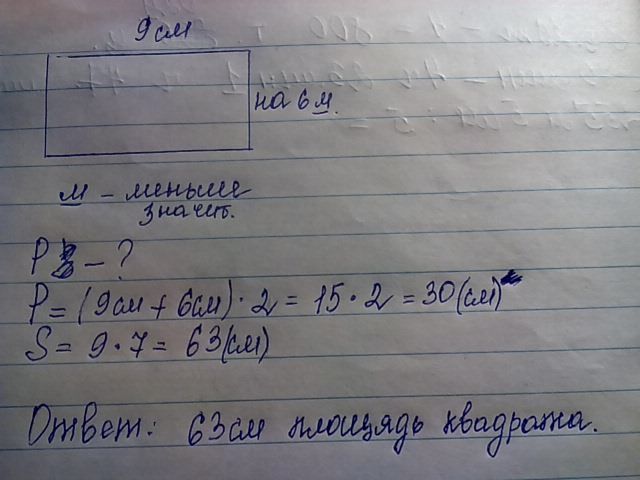 9см
на 6 м.
м – меньше
значит.
P – ?
P = (9см + 6см) · 2 = 15 · 2 = 30(см)
S = 9 · 7 = 63(см)
Ответ: 63см площядь квадрата.